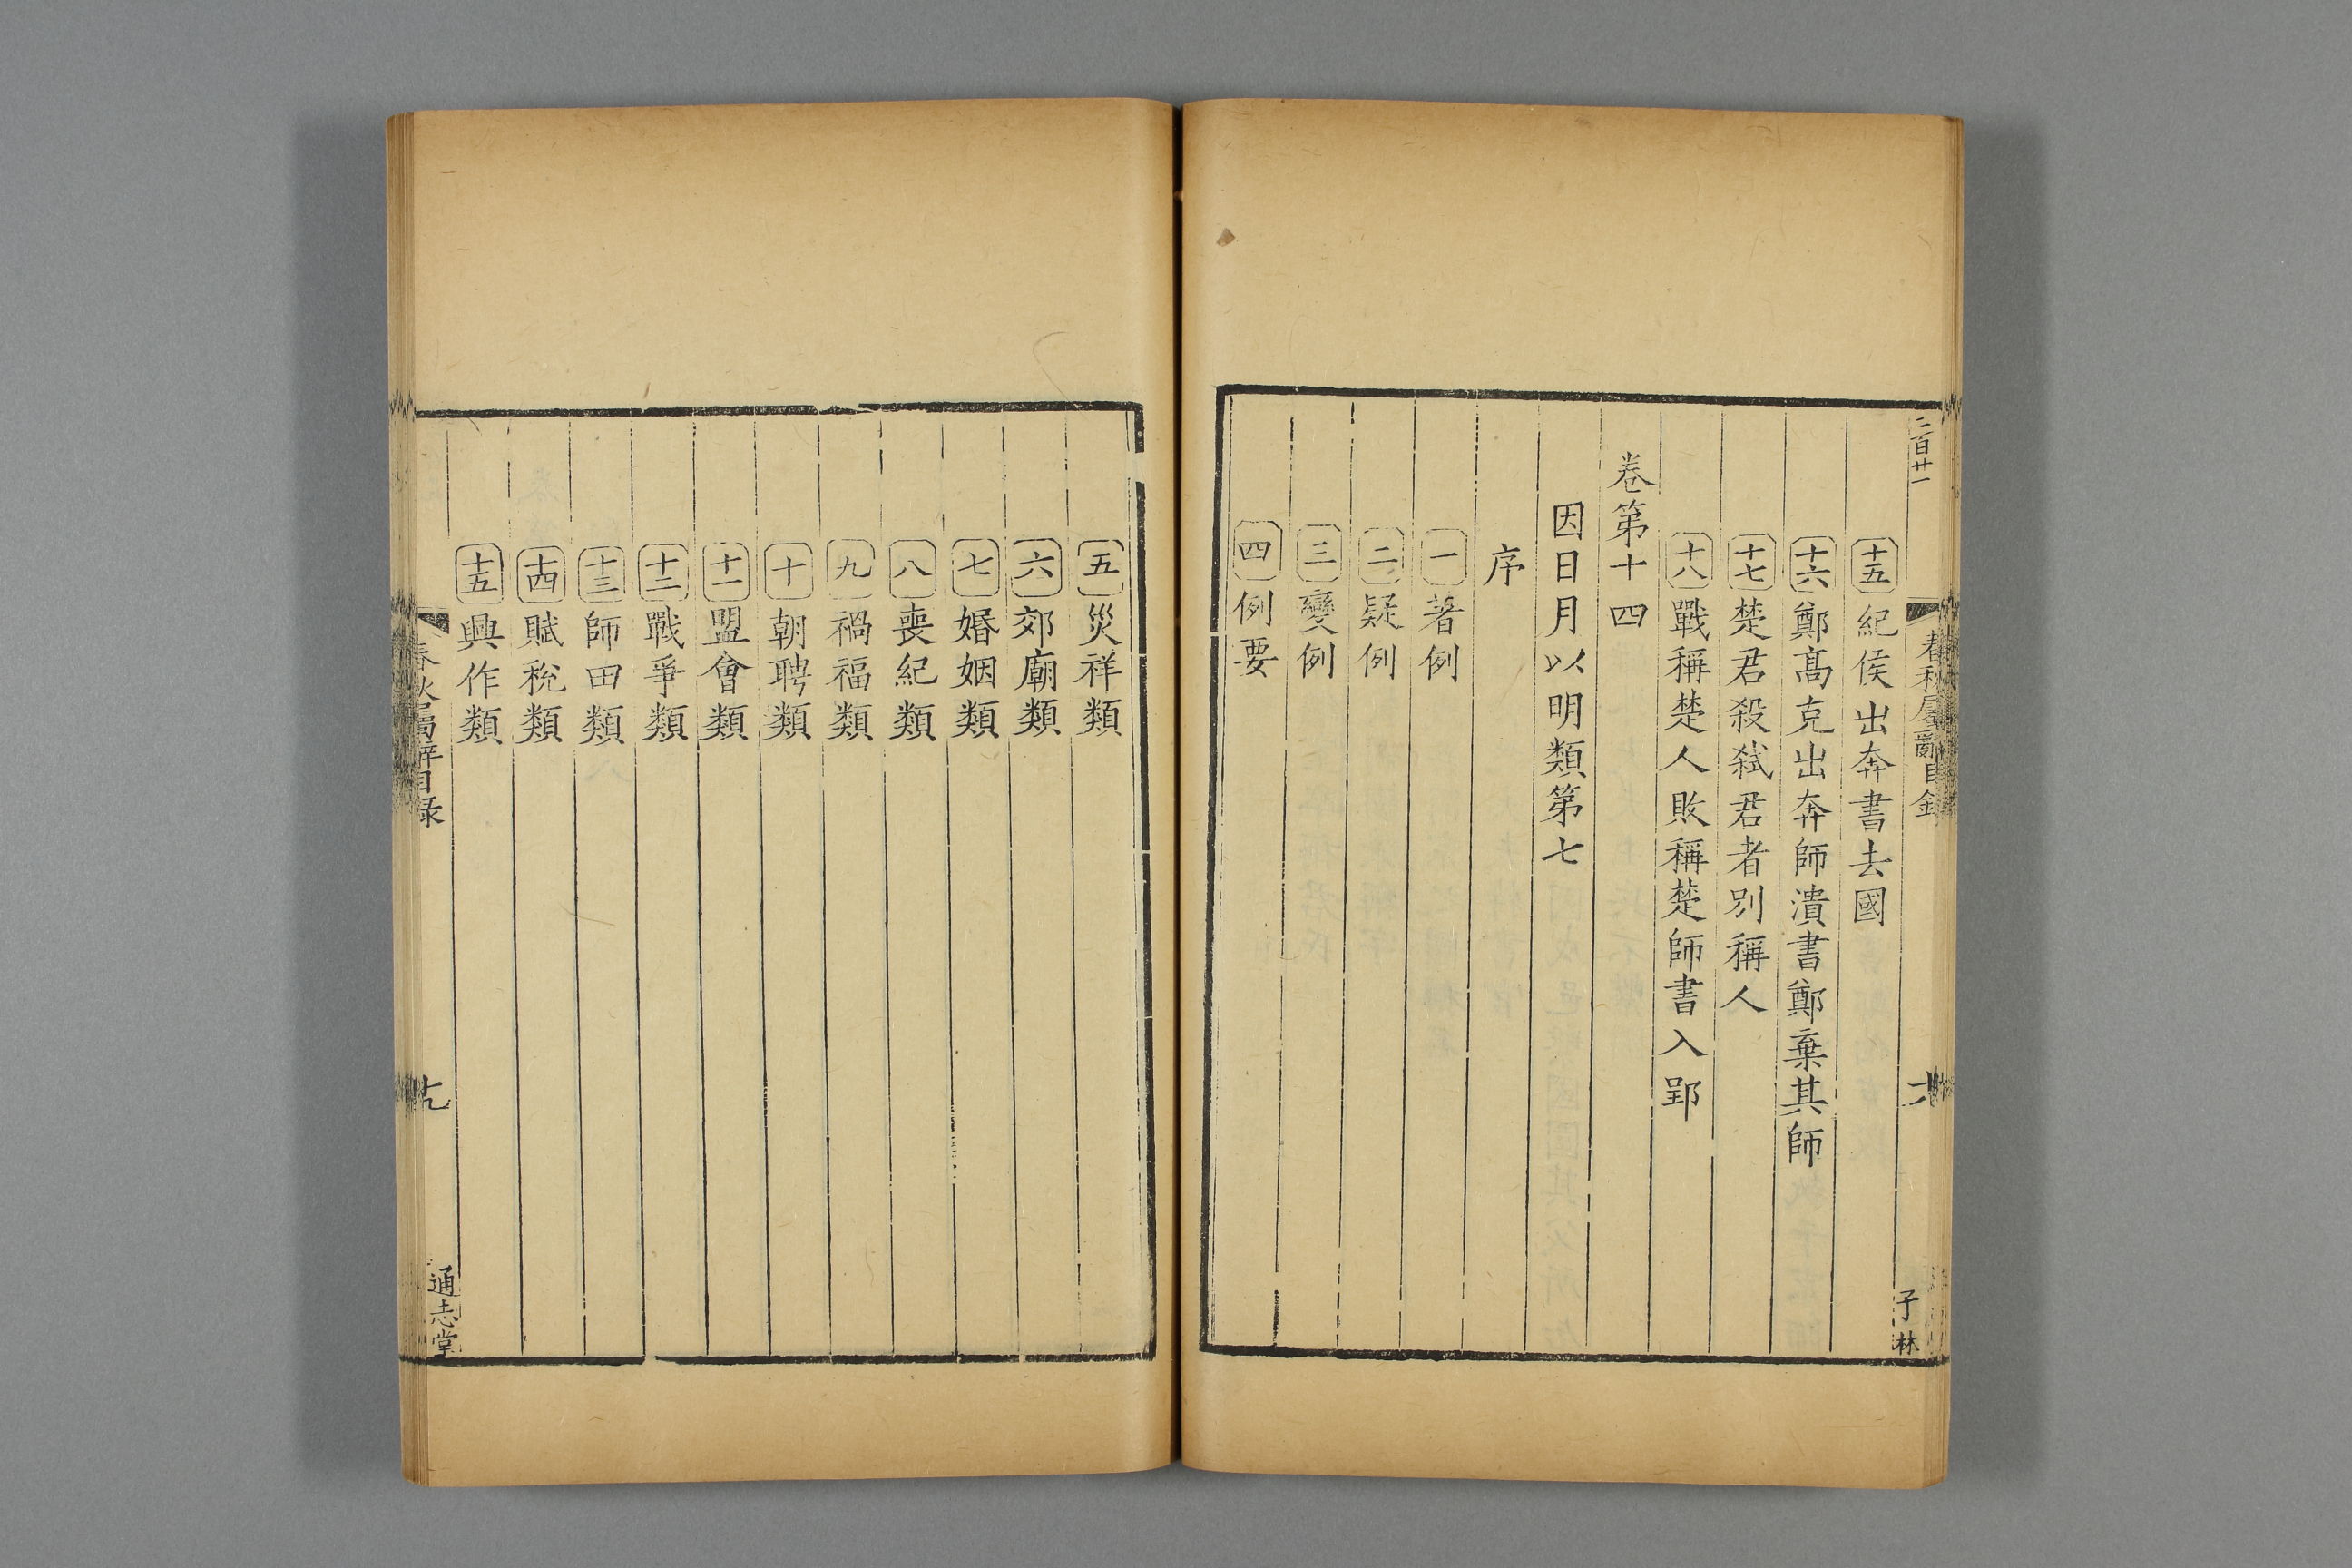 二百廿一
春秋屬辭目錄
子林
十五紀侯出奔書去國
十六鄭髙克出奔師潰書鄭棄其師
十七楚君殺弑君者別稱人
十八戰稱楚人敗稱楚師書入郢
卷第十四
因日月以明類第七
序
一著例
二疑例
三變例
四例要
五災祥類
六郊廟類
七婚姻類
八喪紀類
九禍福類
十朝聘類
十一盟會類
十二戰爭類
十三師田類
十四賦稅類
十五興作類
春秋屬辭目録
十九
通志堂